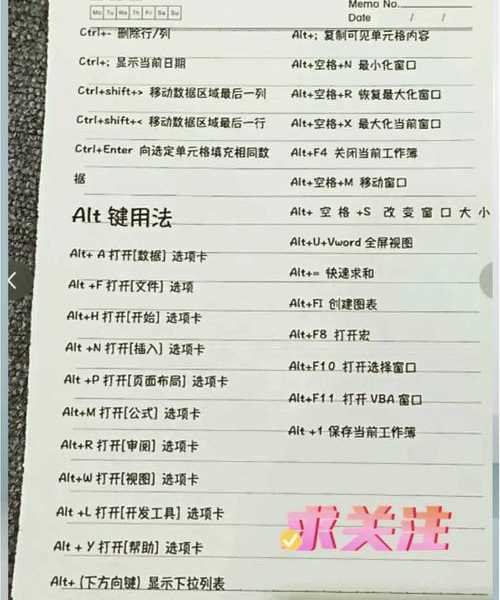 Mo Tu We Th Fr Sa Su
Memo No.
Date / /
Ctrl+- 删除行/列
Ctrl+; 显示当前日期
Ctrl+shift+> 移动数据区域最后一列
Ctrl+shift+< 移动数据区域最后一行
Ctrl+Enter 向选定单元格填充相同数
据
Alt 键用法
Alt+ A 打开[数据] 选项卡
Alt +F 打开[文件] 选项
Alt+H 打开[开始] 选项卡
Alt +N 打开[插入] 选项卡
Alt +P 打开[页面布局] 选项卡
Alt+M 打开[公式] 选项卡
Alt+R 打开[审阅] 选项卡
Alt+W 打开[视图] 选项卡
Alt +L 打开[开发工具] 选项卡
Alt + Y 打开[帮助] 选项卡
Alt+ (下方向键) 显示下拉列表
Alt+; 复制可见单元格内容
Alt+空格+N 最小化窗口
Alt+空格+R 恢复最大化窗口
Alt+空格+X 最大化当前窗口
Alt+F4 关闭当前工作簿
Alt+空格+M 移动窗口
Alt+ 空格 +S 改变窗口大小
Alt+U+Vword 全屏视图
Alt+= 快速求和
Alt+FI 创建图表
Alt+F8 打开宏
Alt+F10 打开选择窗口
Alt+F11 打开 VBA 窗口
Alt +1 保存当前工作簿
求关注